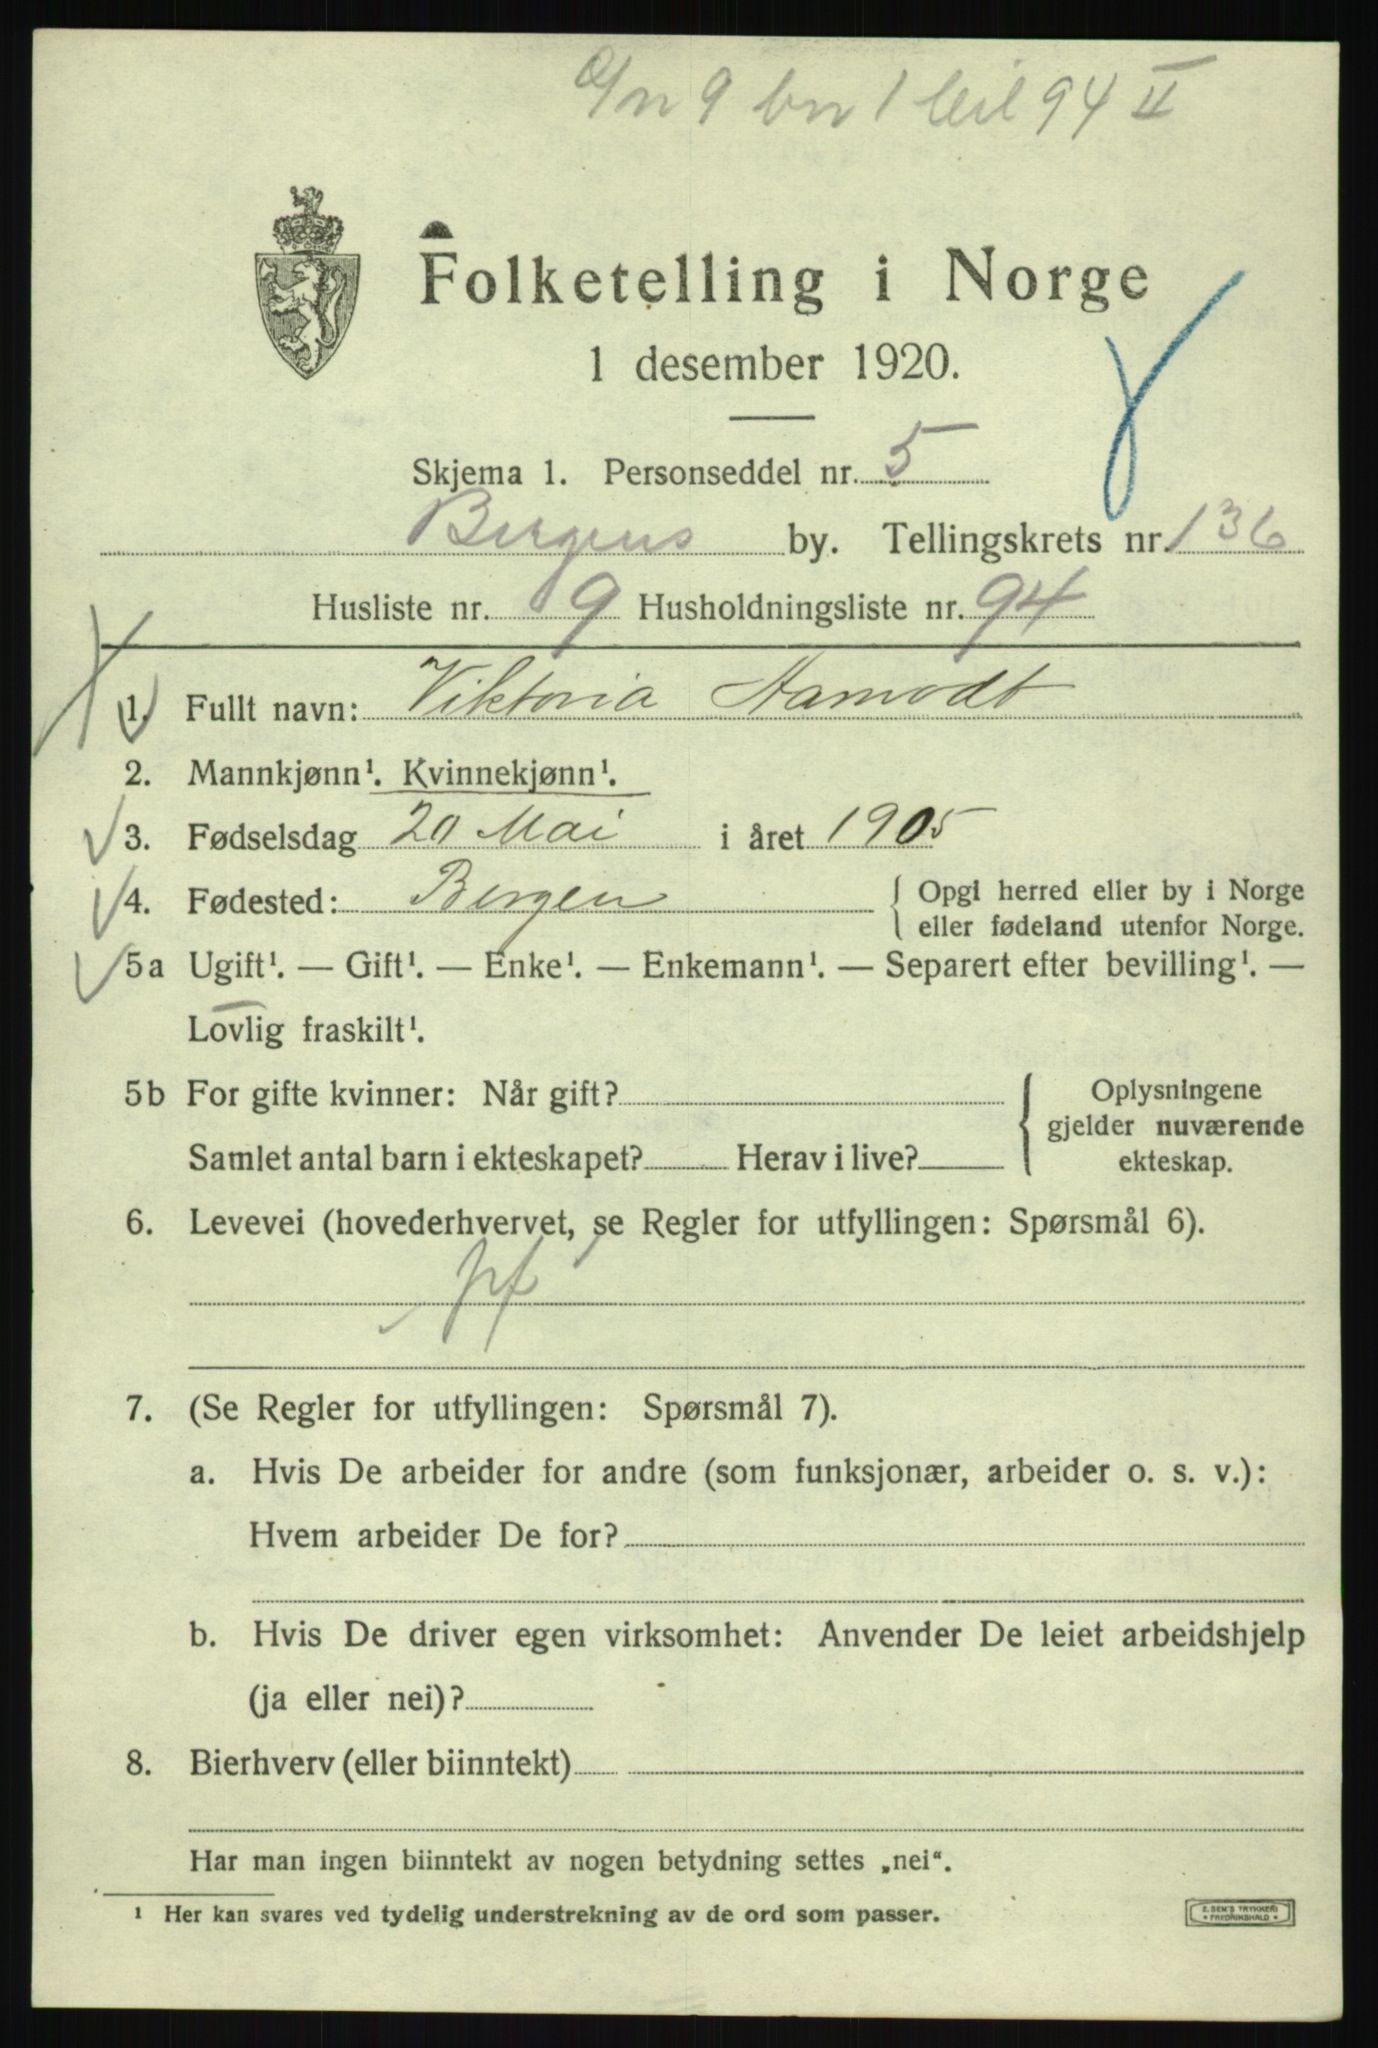 9 bn 1 leil 94 II
Folketelling i Norge
1 desember 1920.
Skjema 1. Personseddel nr. 5
Bergens by. Tellingskrets nr. 136
Husliste nr. 9 Husholdningsliste nr. 94
1. Fullt navn: Viktoria Aamodt
2. Mannkjønn¹. Kvinnekjønn¹.
3. Fødselsdag 20 Mai i året 1905
4. Fødested: Bergen { Opgi herred eller by i Norge
eller fødeland utenfor Norge.
5a Ugift¹. — Gift¹. — Enke¹. — Enkemann¹. — Separert efter bevilling¹. —
Lovlig fraskilt¹.
5b For gifte kvinner: Når gift?
Samlet antal barn i ekteskapet? Herav i live?
Oplysningene
gjelder nuværende
ekteskap.
6. Levevei (hovederhvervet, se Regler for utfyllingen: Spørsmål 6).
7. (Se Regler for utfyllingen: Spørsmål 7).
a. Hvis De arbeider for andre (som funksjonær, arbeider o. s. v.):
Hvem arbeider De for?
b. Hvis De driver egen virksomhet: Anvender De leiet arbeidshjelp
(ja eller nei)?
8. Bierhverv (eller biinntekt)
Har man ingen biinntekt av nogen betydning settes „nei“.
¹ Her kan svares ved tydelig understrekning av de ord som passer.
E. SEM'S TRYKKERI
FREDRIKSHALD